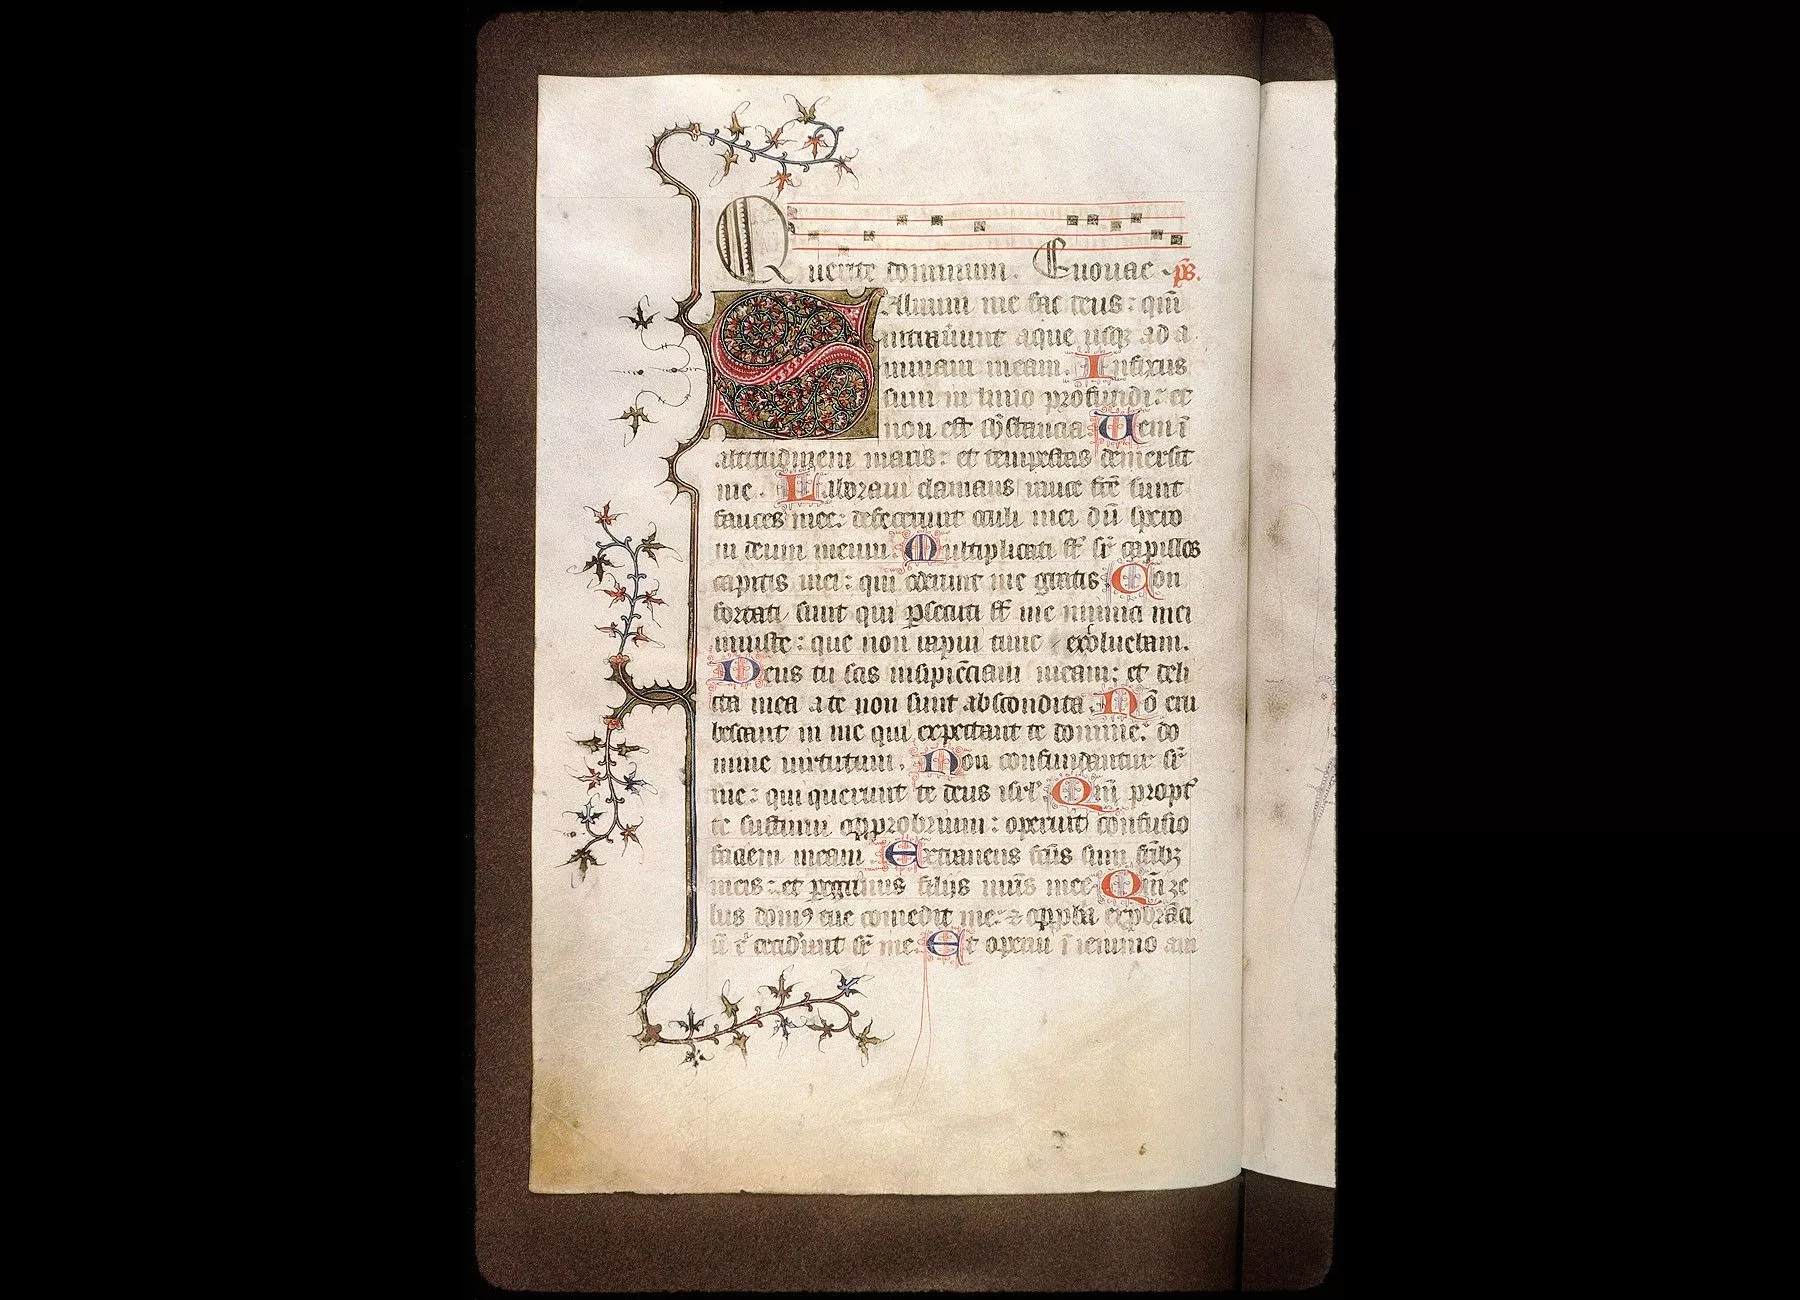 Querite dominum. Euouae. ps.
Saluum me fac deus: qm̄
intrauerunt aque usq; ad a
nimam meam. Infixus
sum in limo profundi: et
non est sb̄stancia Ueni ī
altitudinem maris: et tempestas demersit
me. Laboraui clamans rauce fc̄e sunt
fauces mee: defecerunt oculi mei dū spero
in deum meum Multiplicati st̄ sr̄ capillos
capitis mei: qui oderunt me gratis Con
fortati sunt qui ꝑsecuti st̄ me inimici mei
iniuste: que non rapui tunc exoluebam.
Deus tu scis insipiēciam meam: et deli
cta mea a te non sunt abscondita Nō eru
bescant in me qui expectant te domine: do
mine uirtutum. Non confundantur sr̄
me: qui querunt te deus isrl̄ Qm̄ propt̄
te sustinui opprobrium: operuit confusio
faciem meam Extraneus fc̄us sum fr̄ibz
meis: et ꝑegrinus filijs mr̄is mee Qm̄ ze
lus domꝰ tue comedit me: ⁊ opp̱bia exp̱bracı
ū t̄ cecider̄unt sr̄ me. Et operui ī ieiunio am